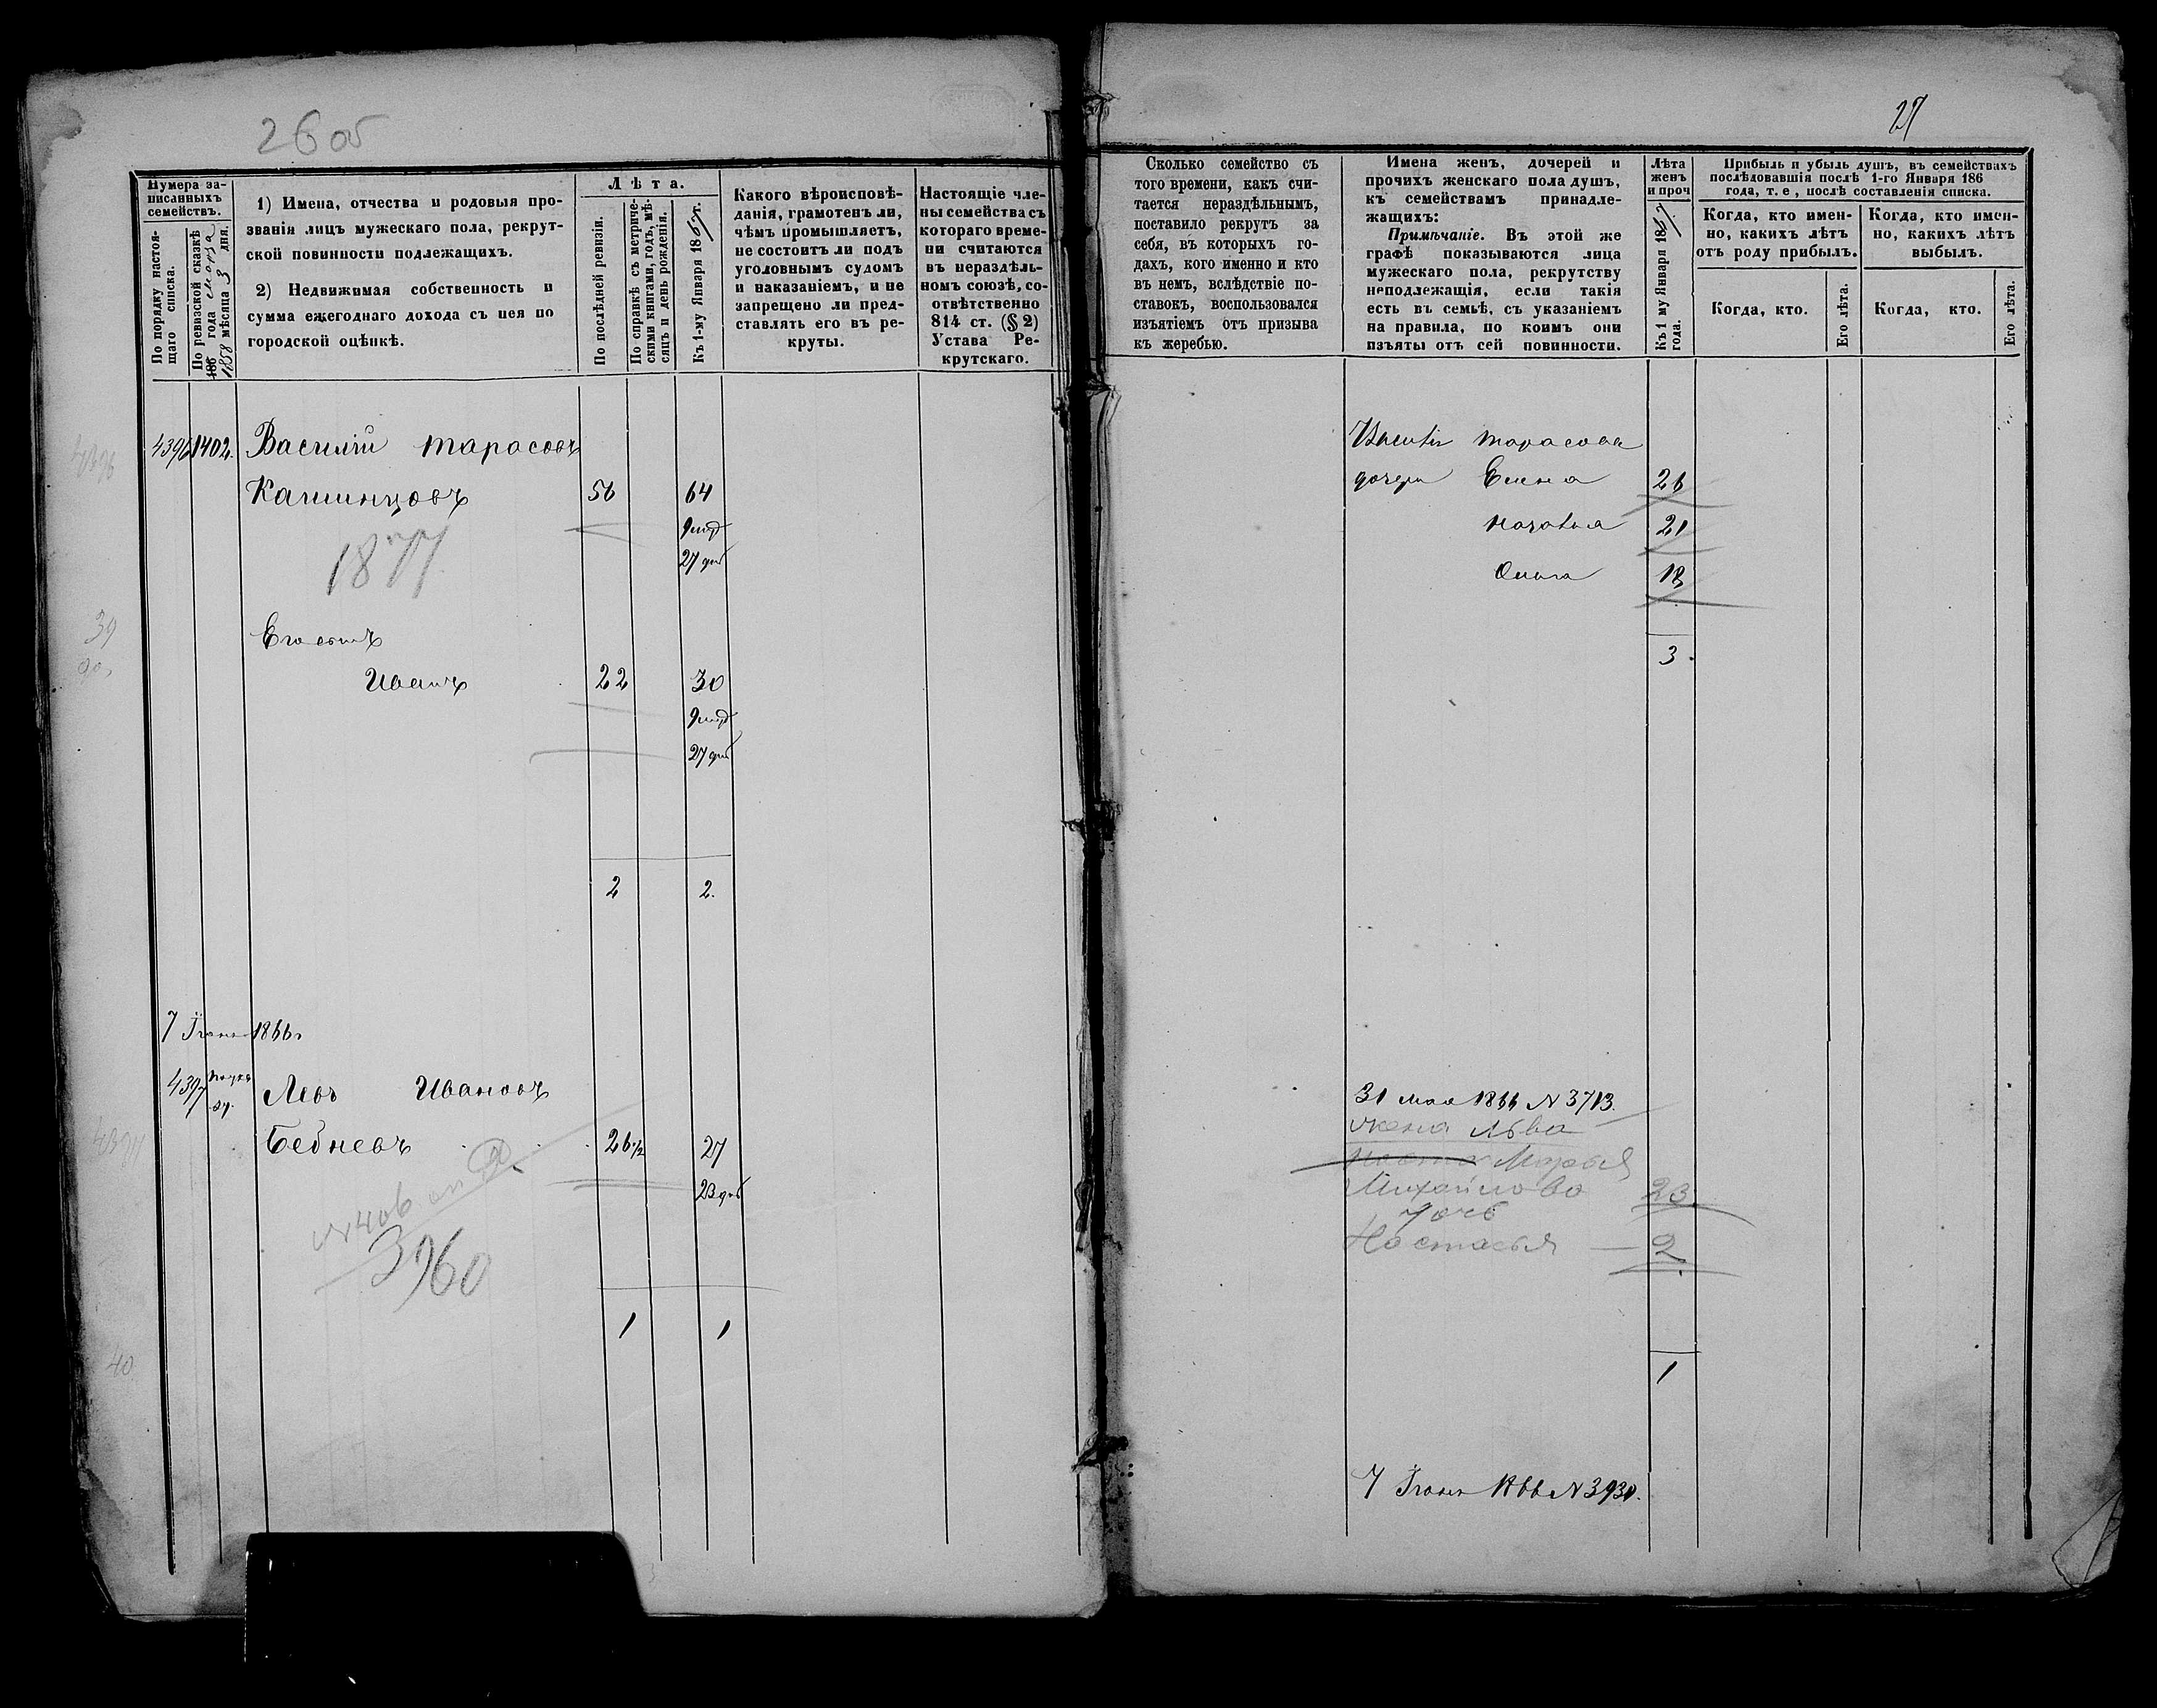 26 об
27
Нумера за-
писанныхъ
семействъ.
По порядку настоя-
щаго списка.
По ревизской сказкѣ
186 года
1858 мѣсяца 3 дня.
1) Имена, отчества и родовыя про-
званія лицъ мужескаго пола, рекрут-
ской повинности подлежащихъ.
2) Недвижимая собственность и
сумма ежегоднаго дохода съ нея по
городской оцѣнкѣ.
Лѣта.
По послѣдней ревизіи.
По справкѣ съ метриче-
скими книгами, годъ, мѣ-
сяцъ и день рожденія.
Къ 1-му Января 1867 г.
Какого вѣроисповѣ-
данія, грамотенъ ли,
чѣмъ промышляетъ,
не состоитъ ли подъ
уголовнымъ судомъ
и наказаніемъ, и не
запрещено ли пред-
ставлять его въ ре-
круты.
Настоящіе чле-
ны семейства съ
котораго време-
ни считаются
въ нераздѣль-
номъ союзѣ, со-
отвѣтственно
814 ст. (§ 2)
Устава Ре-
крутскаго.
Сколько семейство съ
того времени, какъ счи-
тается нераздѣльнымъ,
поставило рекрутъ за
себя, въ которыхъ го-
дахъ, кого именно и кто
въ немъ, вслѣдствіе по-
ставокъ, воспользовался
изъятіемъ отъ призыва
къ жеребью.
Имена женъ, дочерей и
прочихъ женскаго пола душъ,
къ семействамъ принадле-
жащихъ:
Примѣчаніе. Въ этой же
графѣ показываются лица
мужескаго пола, рекрутству
неподлежащія, если такія
есть въ семьѣ, съ указаніемъ
на правила, по коимъ они
изъяты отъ сей повинности.
Лѣта
женъ
и проч
Къ 1 му Января 1867
года.
Прибыль и убыль душъ, въ семействахъ
послѣдовавшія послѣ 1-го Января 186
года, т. е, послѣ составленія списка.
Когда, кто имен-
но, какихъ лѣтъ
отъ роду прибылъ.
Когда, кто имен-
но, какихъ лѣтъ
выбылъ.
Когда, кто.
Его лѣта.
Когда, кто.
Его лѣта.
4396 1402. Василій Тарасовъ
56 64
27 дн
1877
39
Его сынъ
Иванъ 22 30
27 дн
2 2.
7 Іюня 1866.
4397 Левъ Ивановъ
Бедневъ 26 1/2 27
23 дн
3960
1 1
40
Василія Тарасова
дочери Елена 26
Наталья 21
Ольга 18
3.
31 мая 1866 N 3713.
жена Льва
Марья
Михайлова 23
дочь
Настасья — 2
1
7 Іюня 1866 N 3930.